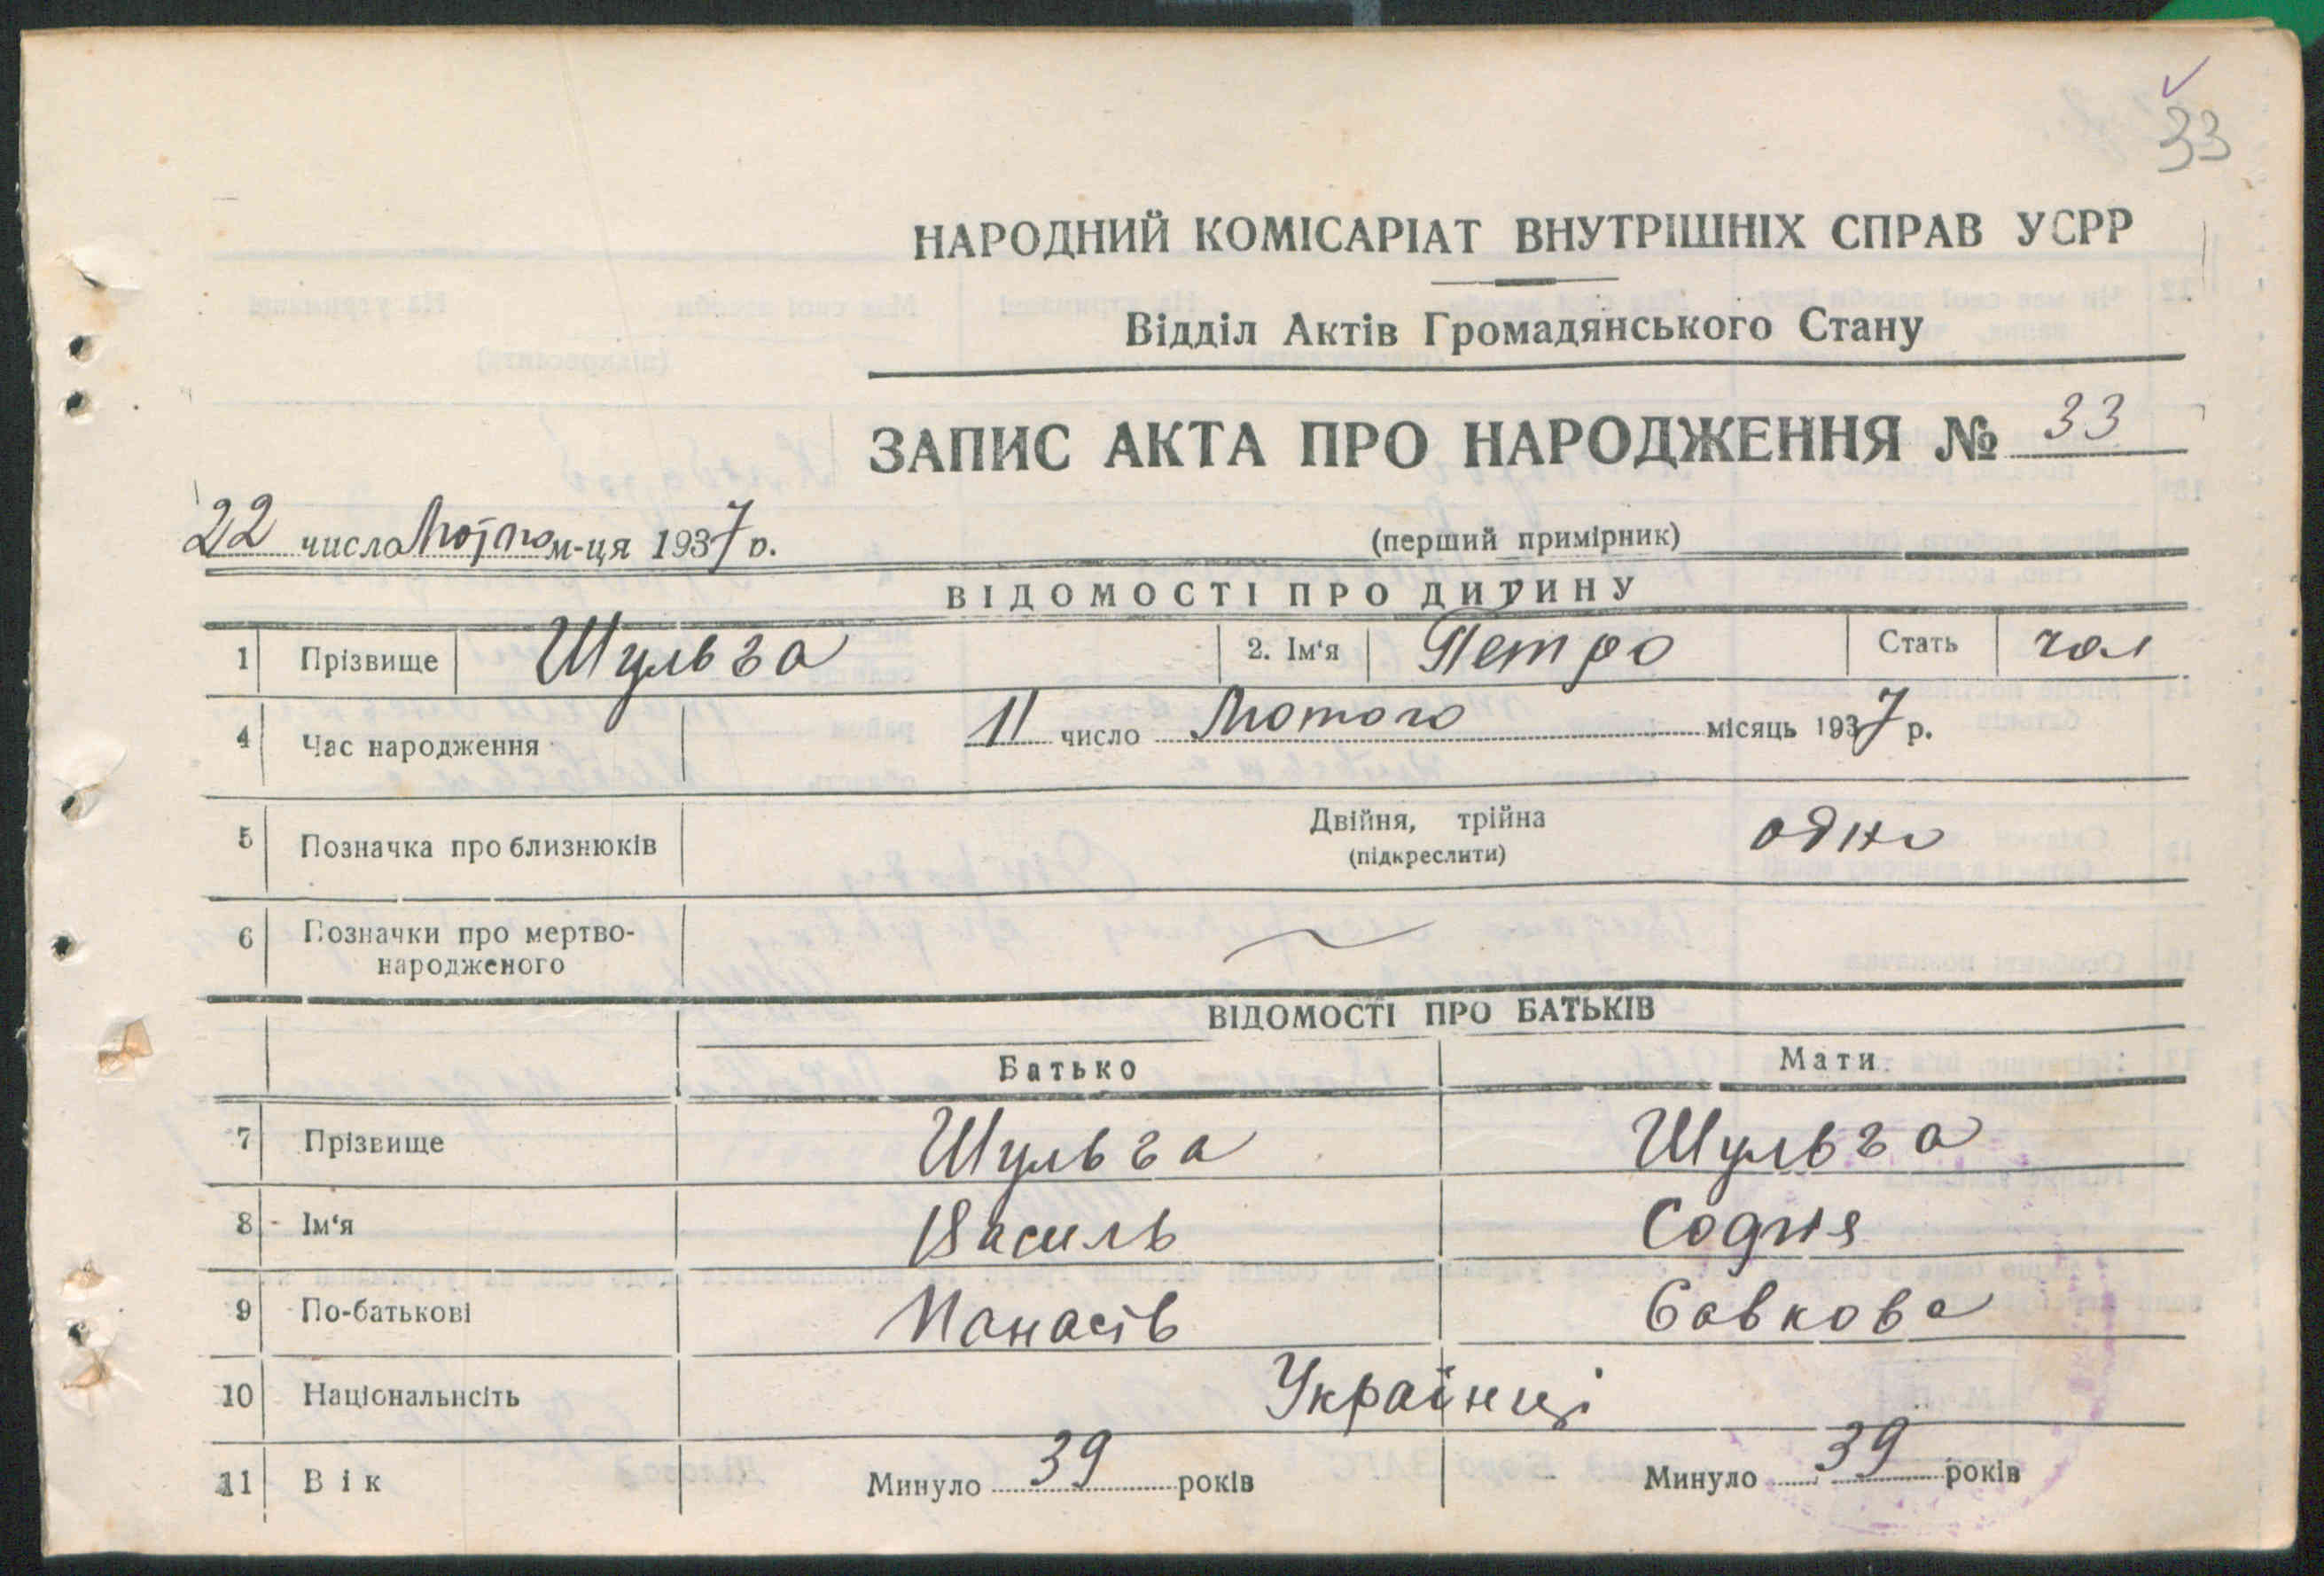 33
НАРОДНИЙ КОМІСАРІАТ ВНУТРІШНІХ СПРАВ УСРР
Відділ Актів Громадянського Стану
ЗАПИС АКТА ПРО НАРОДЖЕННЯ № 33
22 число Лютого м-ця 1937 р.
(перший примірник)
ВІДОМОСТІ ПРО ДИТИНУ
1 Прізвище Шульга 2. Ім'я Петро Стать чол
4 Час народження 11 число Лютого місяць 1937 р.
5 Позначка про близнюків Двійня, трійна одно
(підкреслити)
6 Позначки про мертво-
народженого
ВІДОМОСТІ ПРО БАТЬКІВ
Батько Мати
7 Прізвище Шульга Шульга
8 Ім'я Василь Софія
9 По-батькові Панасів Савкова
10 Національнсіть Українці
11 Вік Минуло 39 років Минуло 39 років